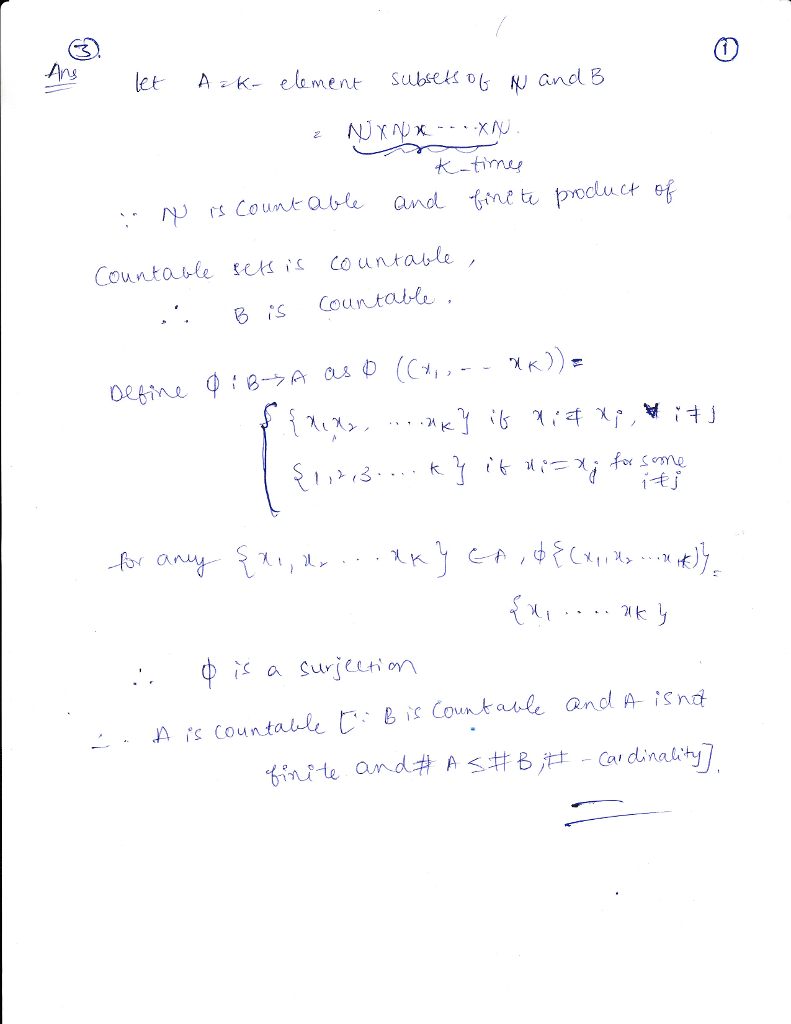 ③. ①
Ans let A = K- element subsets of ℕ and B
= ℕ x ℕ x ---- x ℕ.
K-times
∵ ℕ is Countable and finite product of
Countable sets is countable,
∴ B is Countable.
Define ϕ : B → A as ϕ ((x₁, -- x_K)) =
{ {x₁x₂, ....x_K} if x_i ≠ x_j, ∀ i ≠ j
{1,2,3.... K} if x_i = x_j for some
i ≠ j
for any {x₁, x₂ ... x_K} ∈ A, ϕ{(x₁, x₂ ...x_K)} =
{x₁ .... x_K}
∴ ϕ is a surjection
∴ A is countable [∵ B is Countable and A is not
finite and # A ≤ # B, # - Cardinality].